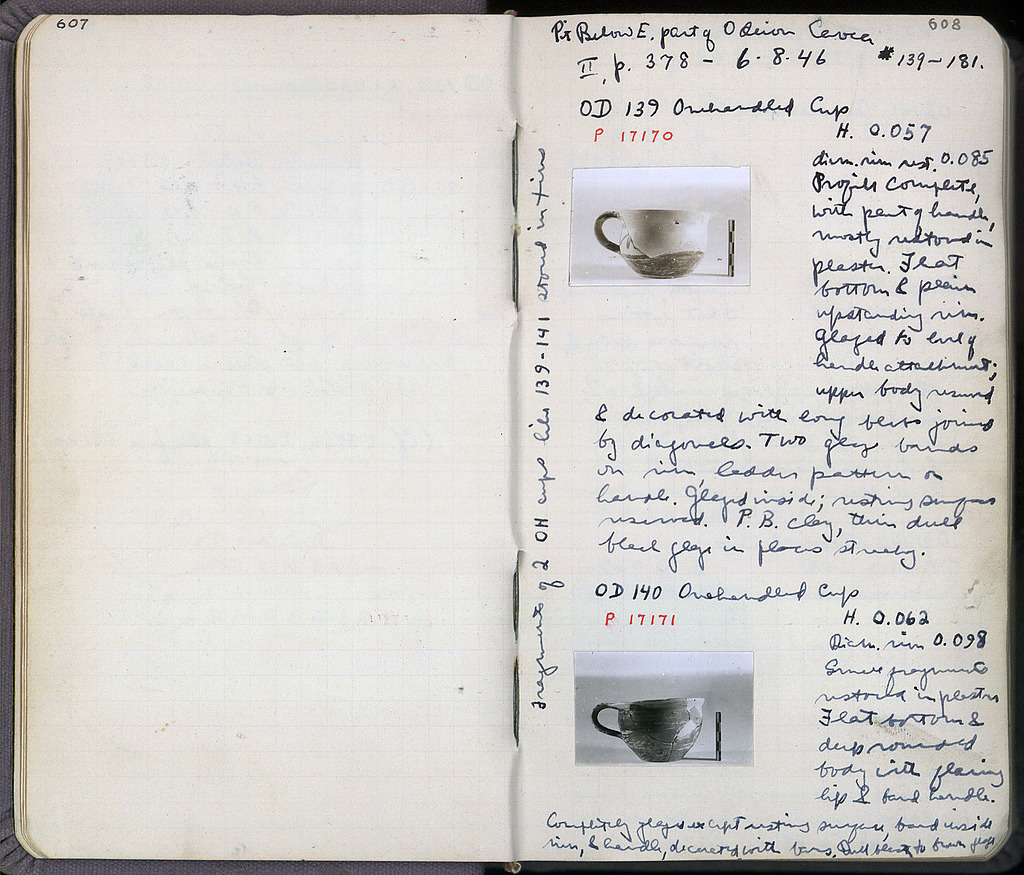 607
608
Pit Below E. part of Odeion Cavea
II, p. 378 - 6.8.46 #139-181.
OD 139 Onehandled Cup
P 17170
H. 0.057
diam. rim rest. 0.085
Profile complete,
with part of handle,
mostly restored in
plaster. Flat
bottom & plain
upstanding rim.
Glazed to level of
handle attachment;
upper body reserved
& decorated with long blobs joined
by diagonals. Two glaze bands
on rim, ladder pattern on
handle. Glazed inside; resting surface
reserved. P. B. clay, thin dull
black glaze in places streaky.
OD 140 Onehandled Cup
P 17171
H. 0.062
Diam. rim 0.098
Some fragments
restored in plaster
Flat bottom &
deep rounded
body with flaring
lip & band handle.
Completely glazed except resting surface, band inside
rim, & handle, decorated with bars. Dull black to brown glaze
Fragments of 2 OH cups like 139-141 stored in tins